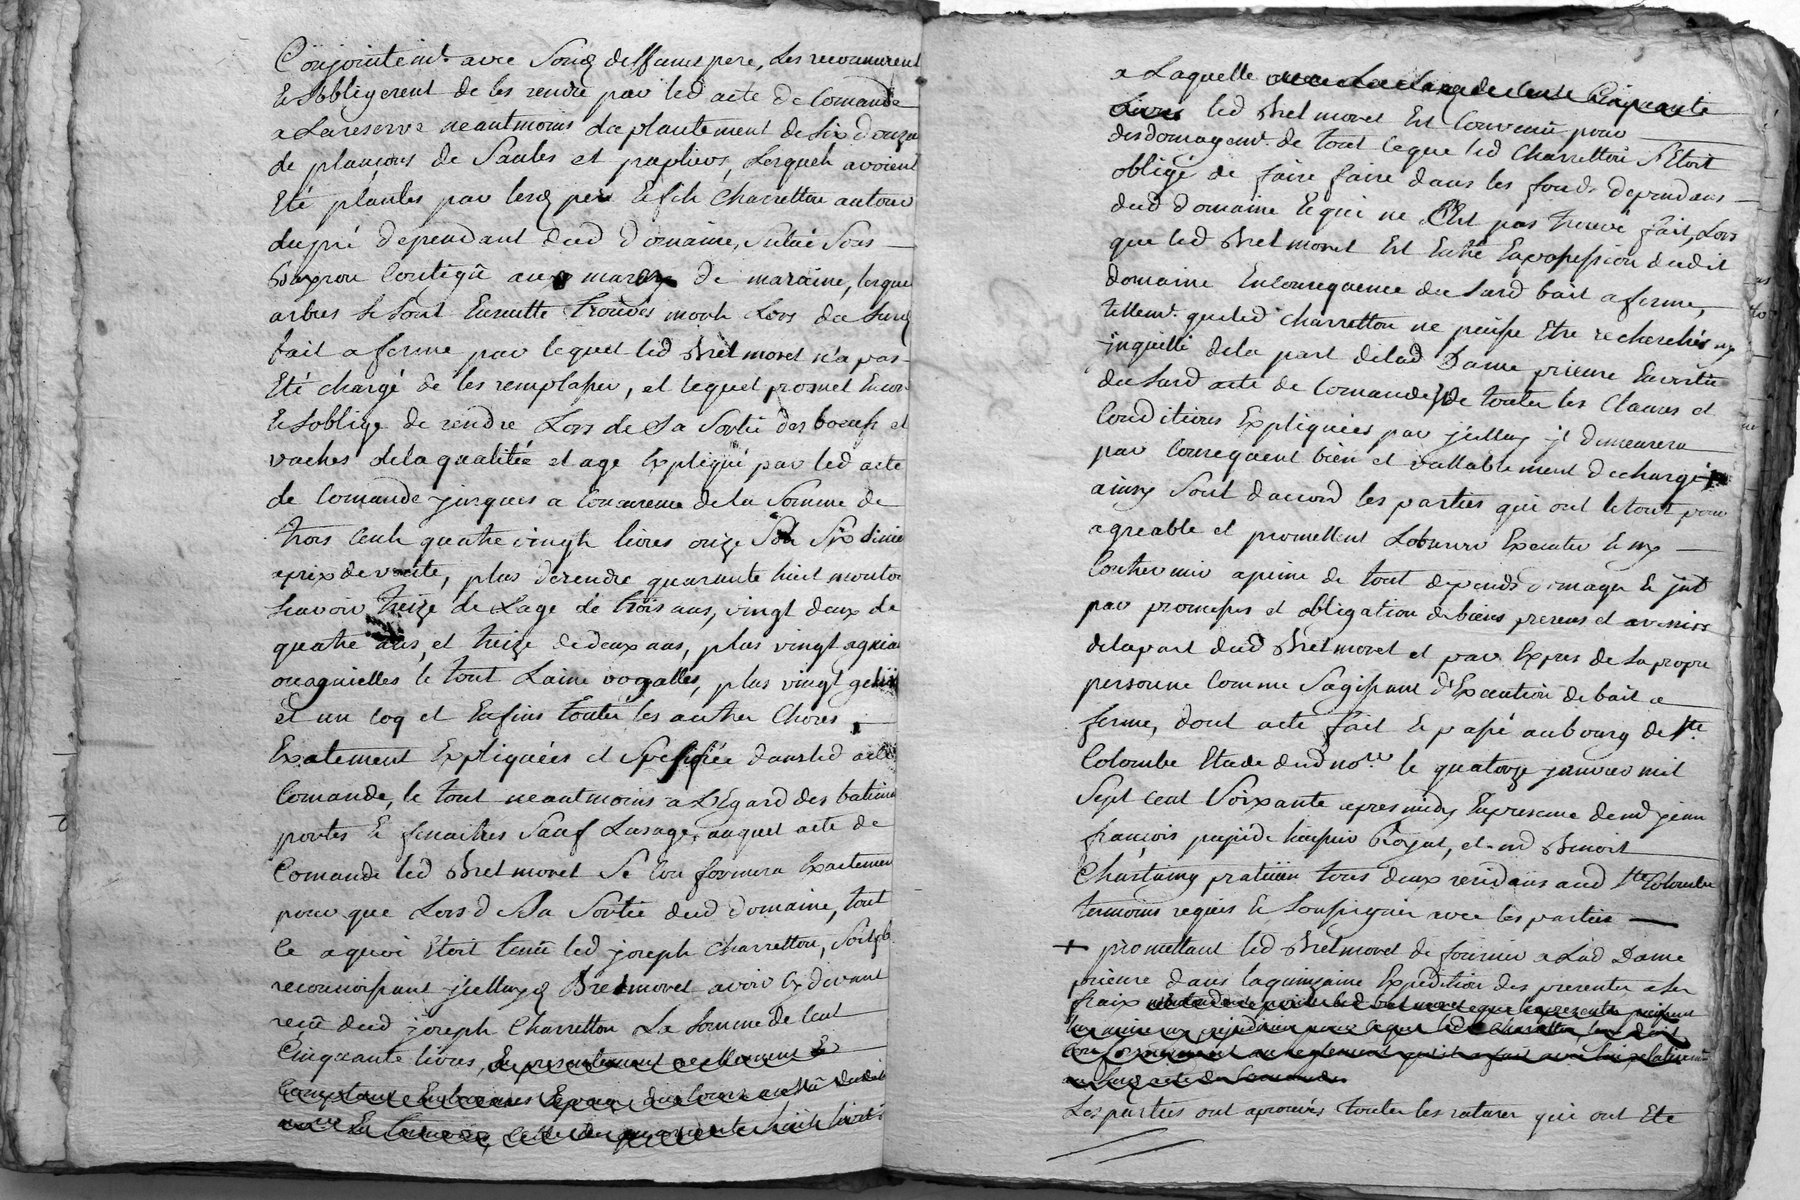 Conjointemt. avec Sond deffunt pere, Les reconnurent
Et Sobligerent de les rendre par led acte de Comande
a La reserve neantmoins du plantement de Six douzai
de plançons de Saules et pupliers, Lesquels avoient
Eté plantés par lesd pere Et fils Charretton autour
du pré dependant dud domaine, Situé Sous
Contigüe aux marais de maraine, lesquel
arbres Se Sont Ensuitte trouvés morts Lors du Susd
bail a ferme par lequel led Bretmoret n'a pas
Eté chargé de les remplaser, et lequel promet Encor
Et Soblige de rendre Lors de Sa Sortie des boeufs et
vaches de la qualitée et age Expliqué par led acte
de Comande jusques a Concurence de la Somme de
trois Cents quatre vingts livres onze Sols Six denie
a prix de vente, plus de rendre quarante huit mouton
Scavoir treize de Lage de trois ans, vingt deux de
quatre ans, et treize de deux ans, plus vingt agniau
ou agnielles le tout Laine
plus vingt geline
et un Coq et Enfins toutes les autres Choses
Exatement Expliquées et Spesifiée dans led acte
Comande, le tout neantmoins a L'Egard des batimen
portes Et fenaitres Sauf Lusage, auquel acte de
Comande led Bretmoret Se Conformera Exactemen
pour que Lors d Sa Sortie dud domaine, tout
Ce a quoi Etoit tenu led joseph Charretton, Soit
reconnoissant jcelluyd Bretmoret avoir Cy devant
reçû dud joseph Charretton La Somme de Cent
Cinquante livres, Et presentement reellement Et
a Laquelle Cinquante
Livres led Bretmoret Est Convenu pour
desdomagemt. de tout Ceque led Charretton S'Etoit
obligé de faire faire dans les fonds dependans
dud domaine Et qui ne S'Est pas trouvé fait, Lors
que led Bretmoret Est Entré En possession dudit
domaine En Consequence du Susd bail a ferme,
tellemt. que led Charretton ne puisse Etre recherchés ny
jnquietté de la part de lad Dame prieure En vertu
du Susd acte de Comande, de toutes les Clauses et
Conditions Expliquées par jcelluy jl demeurera
par Consequent bien et vallablement dechargé
ainsy Sont daccord les parties qui ont le tout pour
agreable et promettent Lobserver Executer Et ny
Contrevenir a peine de tout depends domages Et jnt
par promesses et obligation de biens presens et avenirs
de la part dud Bretmoret et par Expres de Sa propre
personne Comme Sagissant d'Execution de bail a
ferme, dont acte fait Et passé au bourg de Ste.
Colombe Etude dud nore. le quatorze janvier mil
Sept Cent Soixante apres midy En presence de md jean
françois huissier Royal, et md Benoit
Chastaing praticien tous deux residans aud Ste. Colombe
temoins requis Et Soussignés avec les parties
+ promettant led Bretmoret de fournir a Lad Dame
prieure dans la quinzaine Expedition des presentes a Ses
fraix
Les parties ont aprouvés toutes les ratures qui ont Eté